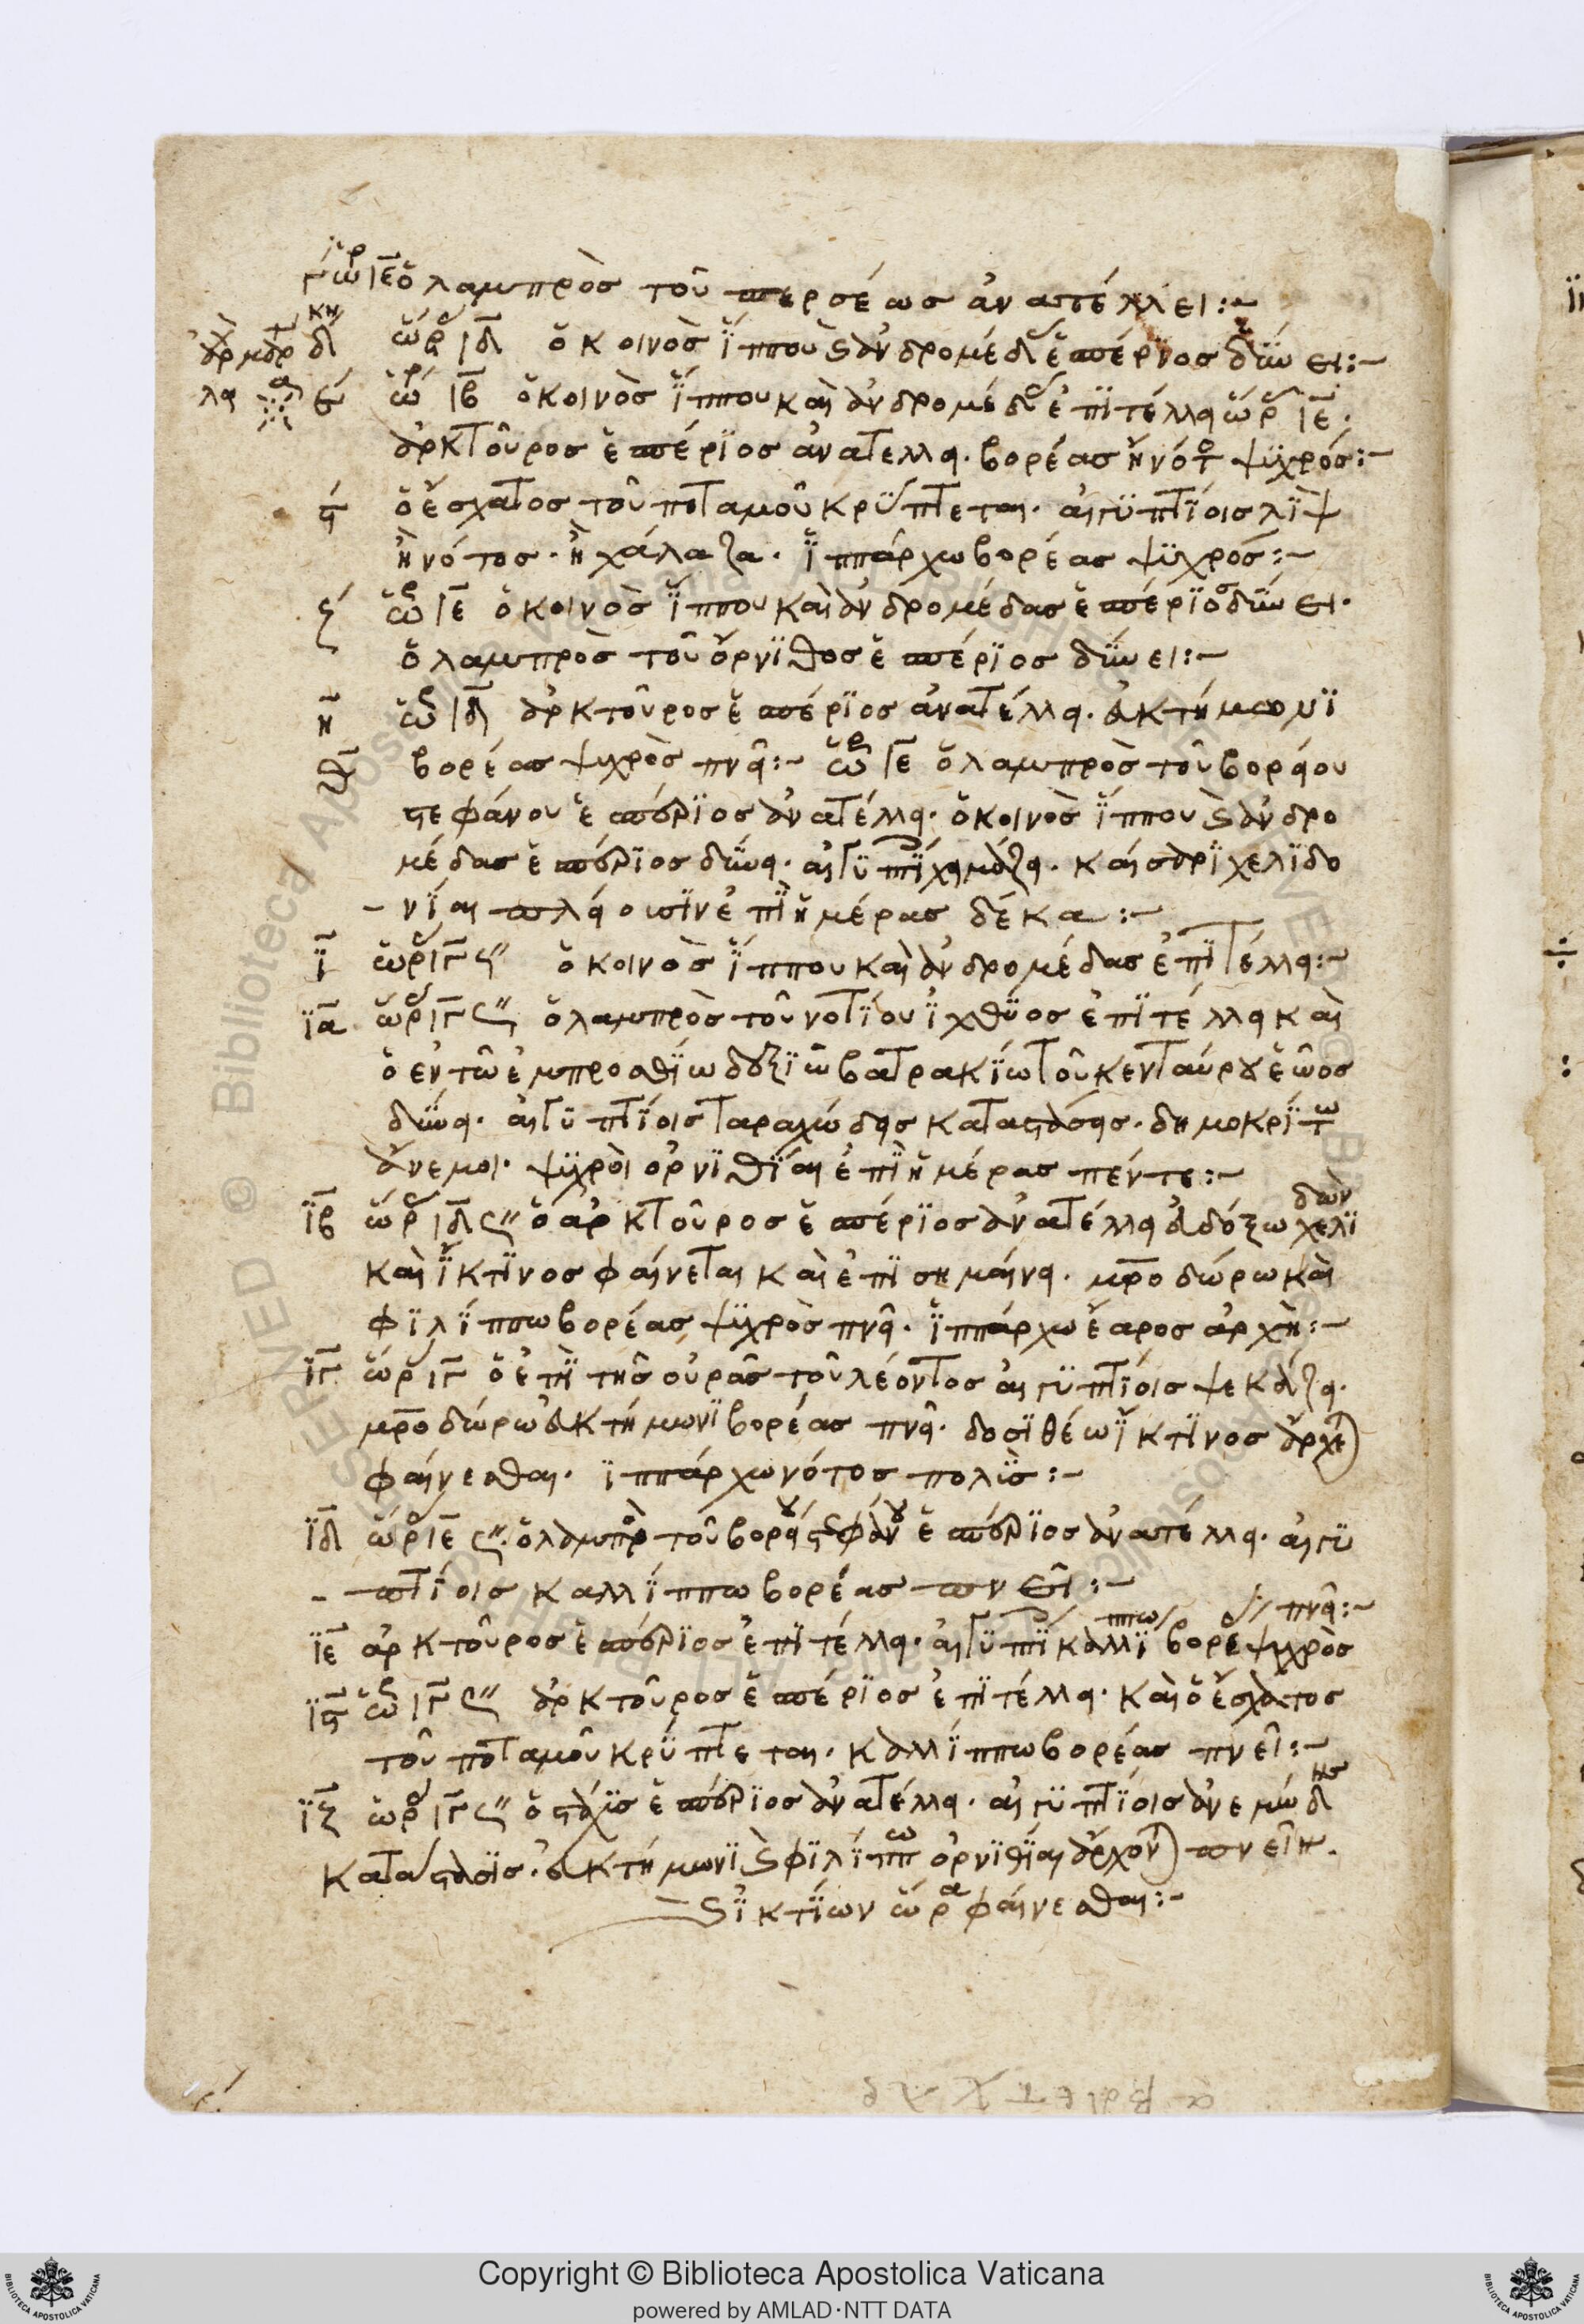 γ ὡρ ιε ὁ λαμπρὸσ τοῦ περσέωσ ἀναστέλλει:~
δ ὡρ ιδ ὁ κοινὸσ ἵππου ϗ ἀνδρομέδ ἑσπέριοσ δύνει:~
ε ὡρ ιβ ὁ κοινὸσ ἵππου καὶ ἀνδρομέδ ἐπιτέλλει ὡρ ιε.
ἀρκτοῦροσ ἑσπέριοσ ἀνατελλει. βορέασ ἢ νότ ψυχρόσ:~
ϛ ὁ ἔσχατοσ τοῦ ποταμοῦ κρύπτεται. αἰγυπτίοισ λὶψ
ἢ νότοσ. ἢ χάλαζα. ἱππάρχω βορέασ ψυχρόσ:~
ζ ὡρ ιε ὁ κοινὸσ ἵππου καὶ ἀνδρομέδασ ἑσπέριοσ δύνει.
ὁ λαμπρὸσ τοῦ ὄρνιθοσ ἑσπέριοσ δύνει:~
η ὡρ ιδ ἀρκτοῦροσ ἑσπέριοσ ἀνατέλλει. εὐκτήμονι
θ βορέασ ψυχρὸσ πνεῖ:~ ὡρ ιε ὁ λαμπρὸσ τοῦ βορείου
στεφάνου ἑσπέριοσ ἀνατέλλει. ὁ κοινὸσ ἵππου ϗ ἀνδρο
μέδασ ἑσπέριοσ δύνει. αἰγυπτί χειμάζει. καίσαρι χελιδο
νίαι πλείουσιν ἐπὶ ἡμέρασ δέκα:~
ι ὡρ ιγ ϛ" ὁ κοινὸσ ἵππου καὶ ἀνδρομέδασ ἐπιτέλλει:~
ια ὡρ ιγ ϛ ὁ λαμπρὸσ τοῦ νοτίου ἰχθύοσ ἐπιτέλλει καὶ
ὁ ἐν τῶ ἐμπροσθίω δεξιῶ βατρακίω τοῦ κενταύρου ἑῶοσ
δύνει. αἰγυπτίοισ ταραχώδησ κατάστασησ. δημοκρίτω
ἄνεμοι. ψυχροὶ ὀρνιθίαι ἐπὶ ἡμέρασ πέντε:~
ιβ ὡρ ιδ ϛ" ὁ ἀρκτοῦροσ ἑσπέριοσ ἀνατέλλει εὐδόξω χελιδών
καὶ ἴκτινοσ φαίνεται καὶ ἐπισημαίνει. μητροδώρω καὶ
φιλίππω βορέασ ψυχρὸσ πνεῖ. ἱππάρχω ἔαροσ ἀρχὴ:~
ιγ ὡρ ιγ ὁ ἐπὶ τῆσ οὐρᾶσ τοῦ λέοντοσ αἰγυπτίοισ ψεκάζει.
μητροδώρω εὐκτήμωνι βορέασ πνεῖ. δοσιθέω ἴκτινοσ ἄρχετ
φαίνεσθαι. ἱππάρχω νότοσ πολὺσ:~
ιδ ὡρ ιε ϛ". ὁ λαμπρ τοῦ βορείου στεφάνου ἑσπέριοσ ἀνατέλλει. αἰγυ
πτίοισ καλλίππω βορέασ πνεῖ:~
ιε ἀρκτοῦροσ ἑσπέριοσ ἐπιτέλλει. αἰγυπτί καλλίππω βορέ ψυχρὸσ πνεῖ:~
ιϛ ὡρ ιγ ϛ" ἀρκτοῦροσ ἑσπέριοσ ἐπιτέλλει. καὶ ὁ ἔσχατοσ
τοῦ ποταμοῦ κρύπτεται. καλλίππω βορέασ πνεῖ:~
ιζ ὡρ ιγ ϛ" ὁ στάχυσ ἑσπέριοσ ἀνατέλλει. αἰγυπτίοισ ἀνεμώδησ
κατάστασισ. εὐκτήμωνι ϗ φιλίππω ὀρνιθίαι ἄρχοντ πνεῖν.
ϗ ἰκτίνων ὥρα φαίνεσθαι:~